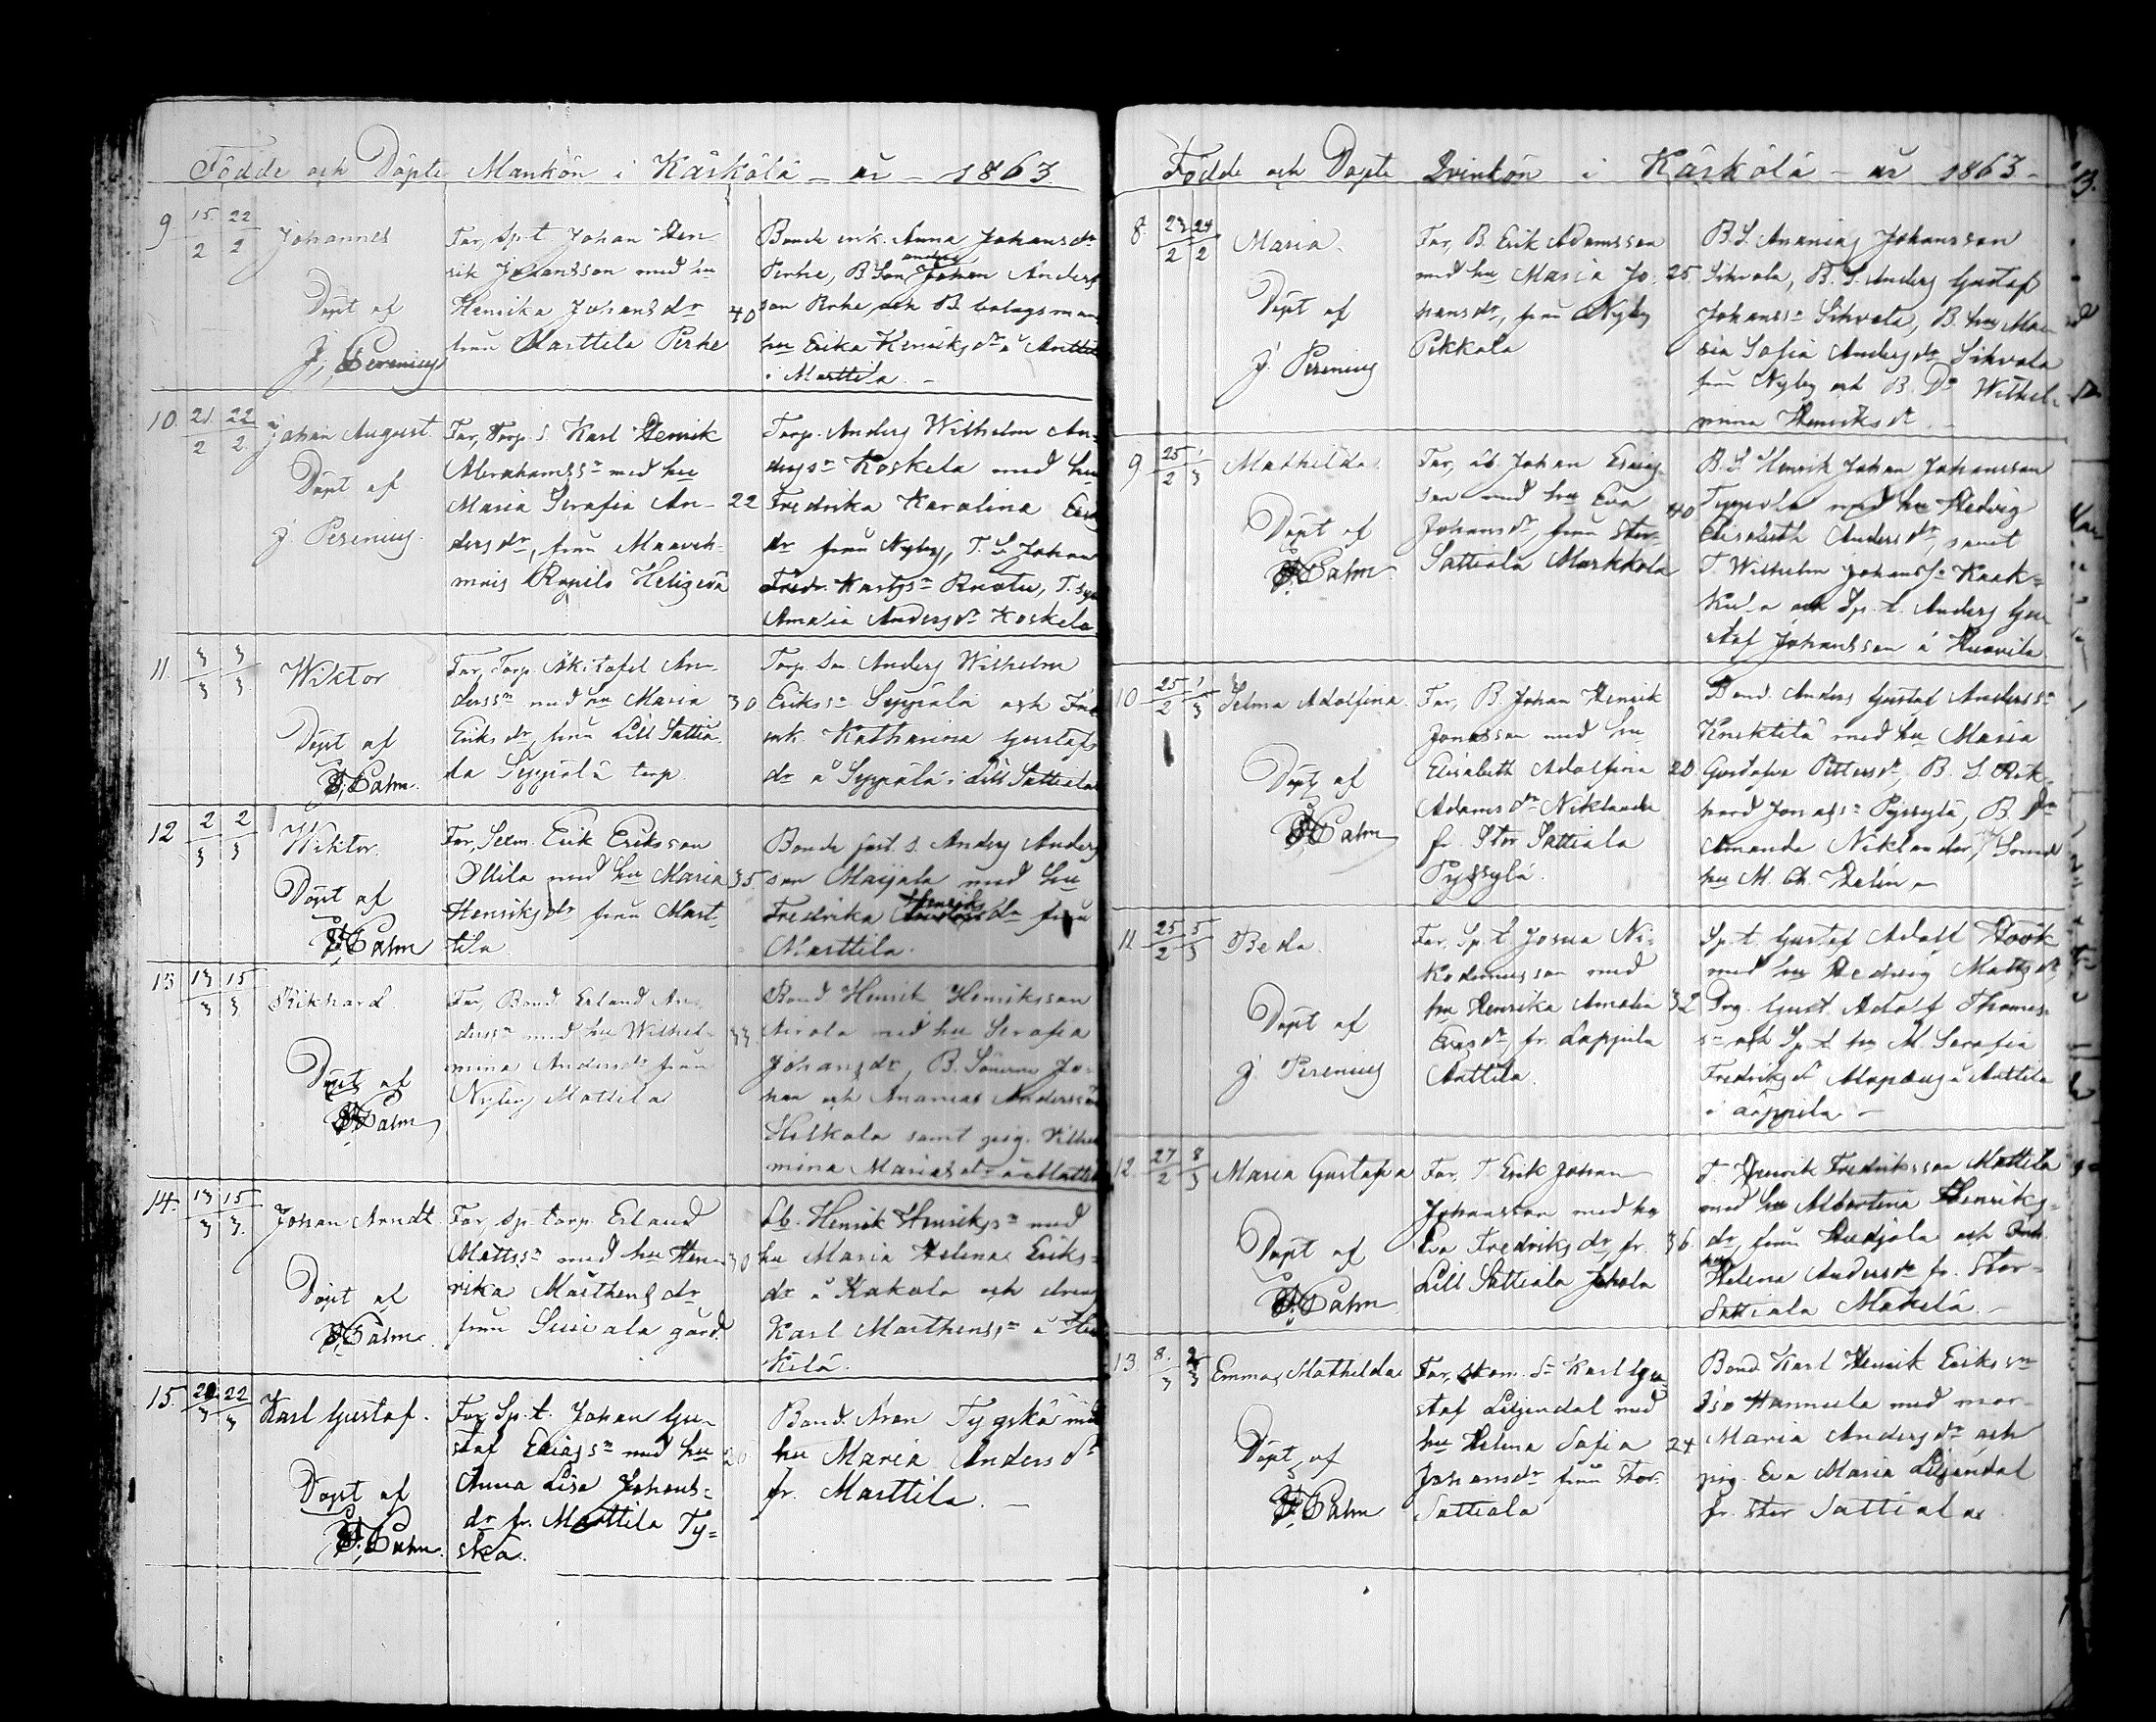 Födde och Döpte Mankön i Kärkölä – år – 1863.
9 15/2 22/2 Johannes
Döpt af
J. Perenius
Far, Sp.t. Johan Hen-
rik Johansson med hu
Henrika Johansdr 40
från Marttila Perhe
Bonde enk. Anna Johansdr
Perhe, B Son Johan Anders
son Perhe, och B. bolagsman
hu Erika Henriksdr å Anttila
i Marttila. –
10. 21/2 22/2 Johan August
Döpt af
J. Perenius.
Far, Torp. s. Karl Henrik
Abrahamssn med hu
Maria Serafia An- 22
dersdr, från
Torp. Anders Wilhelm An-
derssn Koskela med hu
Fredrika Karolina
dr från Nyby, T. S. Johan
Fredr. Karlssn
Amalia Andersdr Koskela
11. 3/3 3/3 Wiktor
Döpt af
Palm.
Far, Torp. An-
derssn med hu Maria 30
Eriksdr, från Lill Sattia-
la Seppälä torp.
Torp. Son Anders Wilhelm
Erikssn Seppälä och
enk. Katharina Gustafs
dr å Seppälä i Lill Sattiala
12 2/3 2/3 Wiktor.
Döpt af
Palm
Far, Erik Eriksson
Ollila med hu Maria 35
Henriksdr från Mart-
tila.
Bonde s. Anders Anders
son Maijala med hu
Fredrika Henriksdr från
Marttila.
13 13/3 15/3 Rikhard
Döpt af
Palm
Far, Bond. Erland An-
derssn med hu Wilhel- 33
mina Andersdr från
Nyby Mattila
Bond. Henrik Henriksson
med hu Serafia
Johansdr, B. Sönerne Jo-
han och Ananias Andersson
samt pig. Wilhel
mina Mariasdr å Mattila
14. 13/3 15/3 Johan Arndt.
Döpt af
Palm.
Far, Sp. torp. Erland
Mattssn med hu Hen- 30
rika Mårthensdr
från gård.
Henrik Henrikssn med
hu Maria Helena Eriks-
dr å Kakola och dreng
Karl Marthenssn å
kilä.
15. 20/3 22/3 Karl Gustaf.
Döpt af
Palm.
Far, Sp.t. Johan Gu-
staf Eliassn med hu 20
Anna Lisa Johans-
dr fr. Marttila Ty-
skä.
Bond. Aron Tygskä med
hu Maria Andersdr
fr. Marttila. –
Födde och Döpte Qvinkön i Kärkölä – år 1863 –
8. 23/2 24/2 Maria.
Döpt af
J. Perenius
Far, B. Erik Adamsson
med hu Maria Jo- 25
hansdr, från Nyby
Pikkala
B. S. Ananias Johansson
Sihvola, B. S. Anders Gustaf
Johanssn Sihvola, B. hu Ma-
ria Sofia Andersdr Sihvola
från Nyby och B. Dr Wilhel-
mina Henriksdr –
9 25/2 1/3 Mathilda.
Döpt af
Palm.
Far, Johan
son med hu Eva 40
Johansdr, från Stor-
Sattiala Markkola
B. S. Henrik Johan Johansson
med hu Hedvig
Elisabeth Andersdr, samt
T. Wilhelm Johanssn Kaak-
kola och Sp. t. Anders Gu-
staf Johansson å
10 25/2 1/3 Selma Adolfina.
Döpt af
Palm
Far, B. Johan Henrik
Jonasson med hu
Elisabeth Adolfina 20
Adamsdr Niklander
fr. Stor Sattiala
Pyssylä.
Bond. Anders Gustaf Anderssn
med hu Maria
Gustafva Pettersdr, B. S. Rik-
hard Jonassn Pyssylä, B. Dr
Amanda Niklander,
hu M. Ch. Helin –
11 25/2 5/3 Beda.
Döpt af
J. Perenius
Far, Sp. t. Josua Ni-
kodemusson med
hu Henrika Amalia 32
Eriksdr, fr. Lappila
Anttila.
Sp. t. Gustaf Adolf Höök
med hu Hedvig Mattsdr
Drg. Gust. Adolf Thomas-
sn och Sp. t. hu M. Serafia
Fredriksdr å Anttila
i Lappila –
12. 27/2 8/3 Maria Gustafva
Döpt af
Palm
Far, T. Erik Johan
Johansson med hu
Eva Fredriksdr, fr. 36
Lill Sattiala
T. Henrik Fredriksson Mattila
med hu Albertina Henriks-
dr, från och
Helena Andersdr fr. Stor-
Sattiala Mäkelä.
13. 8/3 Emma Mathilda
Döpt af
Palm
Far, skom. Sn Karl Gu-
staf Liljendal med
hu Helena Sofia 24
Johansdr från Stor-
Sattiala
Bond. Karl Henrik Erikssn
Iso Hannula med mor
Maria Andersdr och
pig. Eva Maria Liljendal
fr. Stor Sattiala